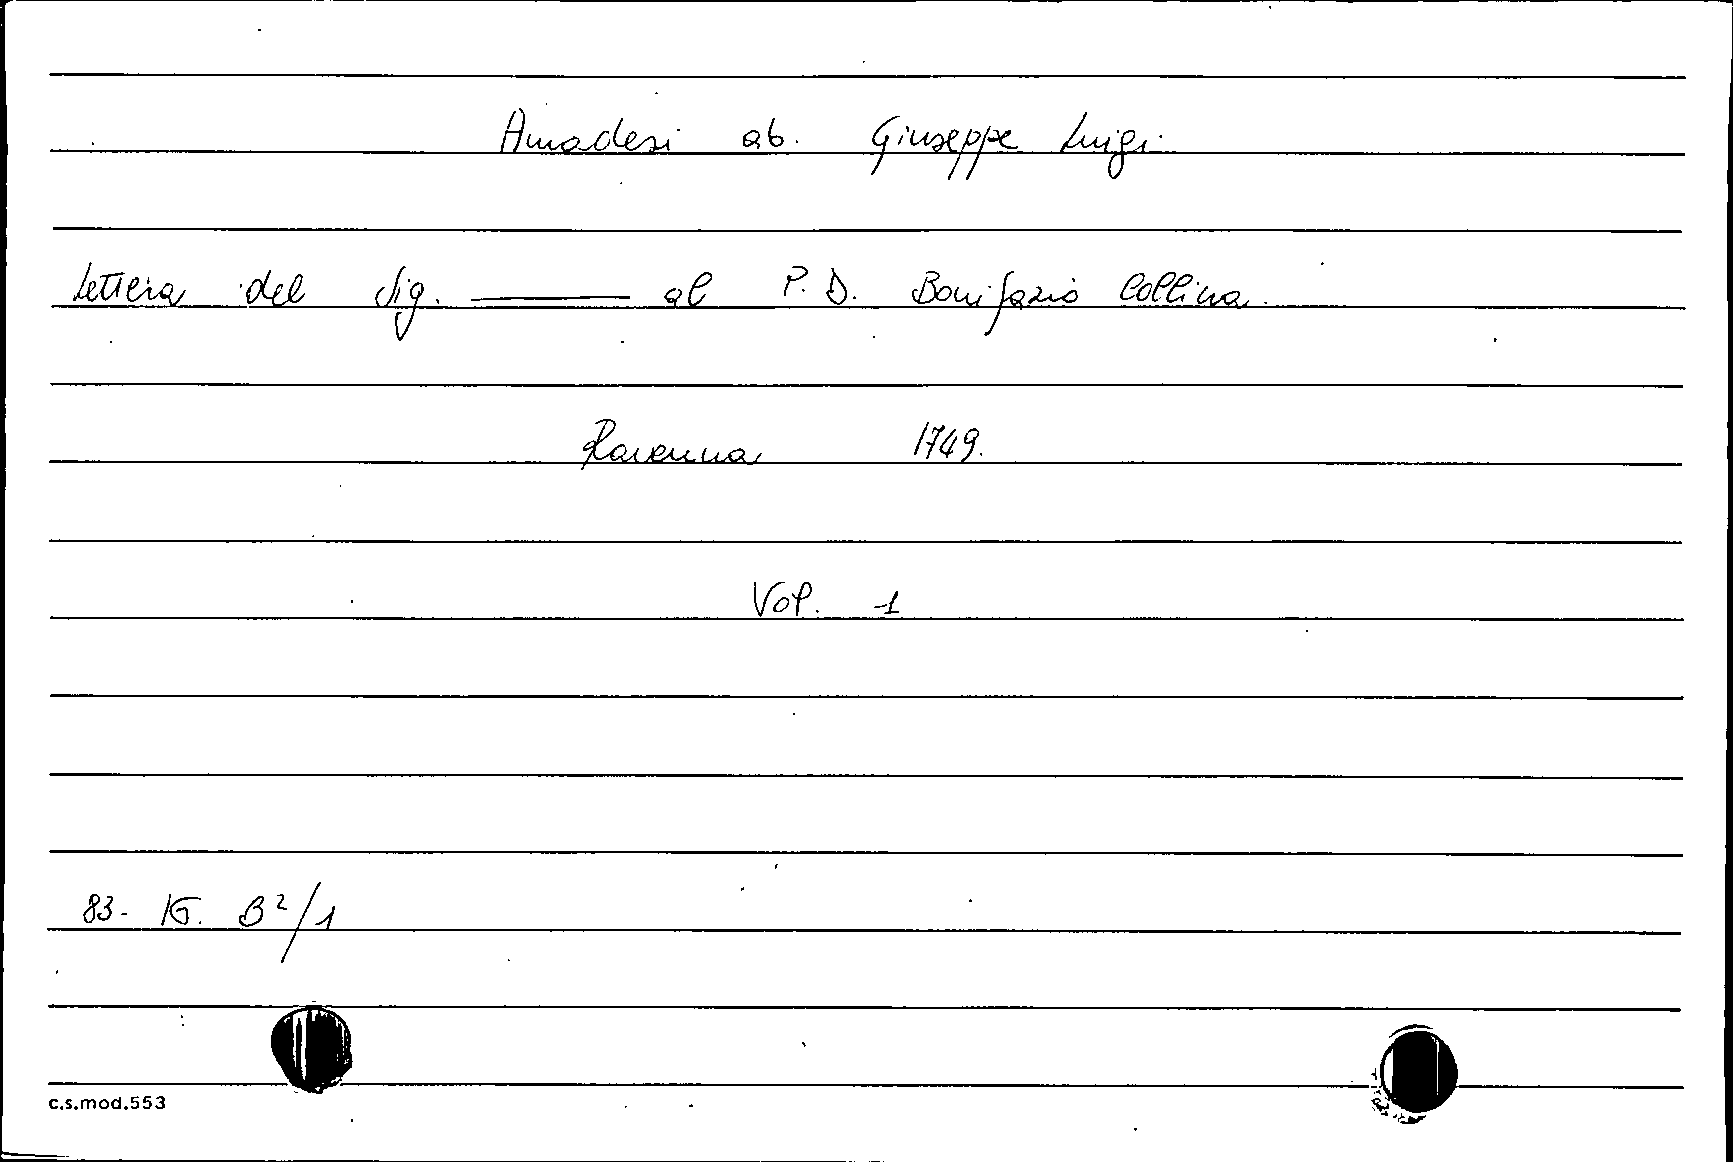 Amadesi ab. Giuseppe Luigi
Lettera del Sig. ——— al P. D. Bonifazio Collina.
Ravenna 1749.
Vol. 1
83- IG. B²/1
c.s.mod.553